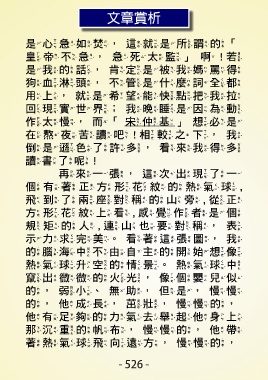 文章賞析
是心急如焚，這就是所謂的「
皇帝不急，急死太監」啊！若
是我的話，肯定是被我媽罵得
狗血淋頭，不管是什麼詞全都
用上，就是希望能快點把我拉
回現實世界；我晚睡是因為動
作太慢，而「宋仲基」想必是
在熬夜苦讀吧！相較之下，我
倒是遜色了許多，看來我得多
讀書了呢！
再來一張，這次出現了一
個有著正方形花紋的熱氣球，
飛到了兩座對稱的山旁，從正
方形花紋上看，感覺作者是個
規矩的人，連山也要對稱，表
示力求完美。看著這張圖，我
的腦海中不由自主的開始想像
熱氣球升空的情景。熱氣球中
竄出微微的火光，像個嬰兒似
的，弱小、無助，但是，慢慢
的，他成長，茁壯，慢慢的，
他有足夠的力氣去舉起他身上
那沉重的帆布，慢慢的，他帶
著熱氣球飛向遠方，慢慢的，
- 526 -